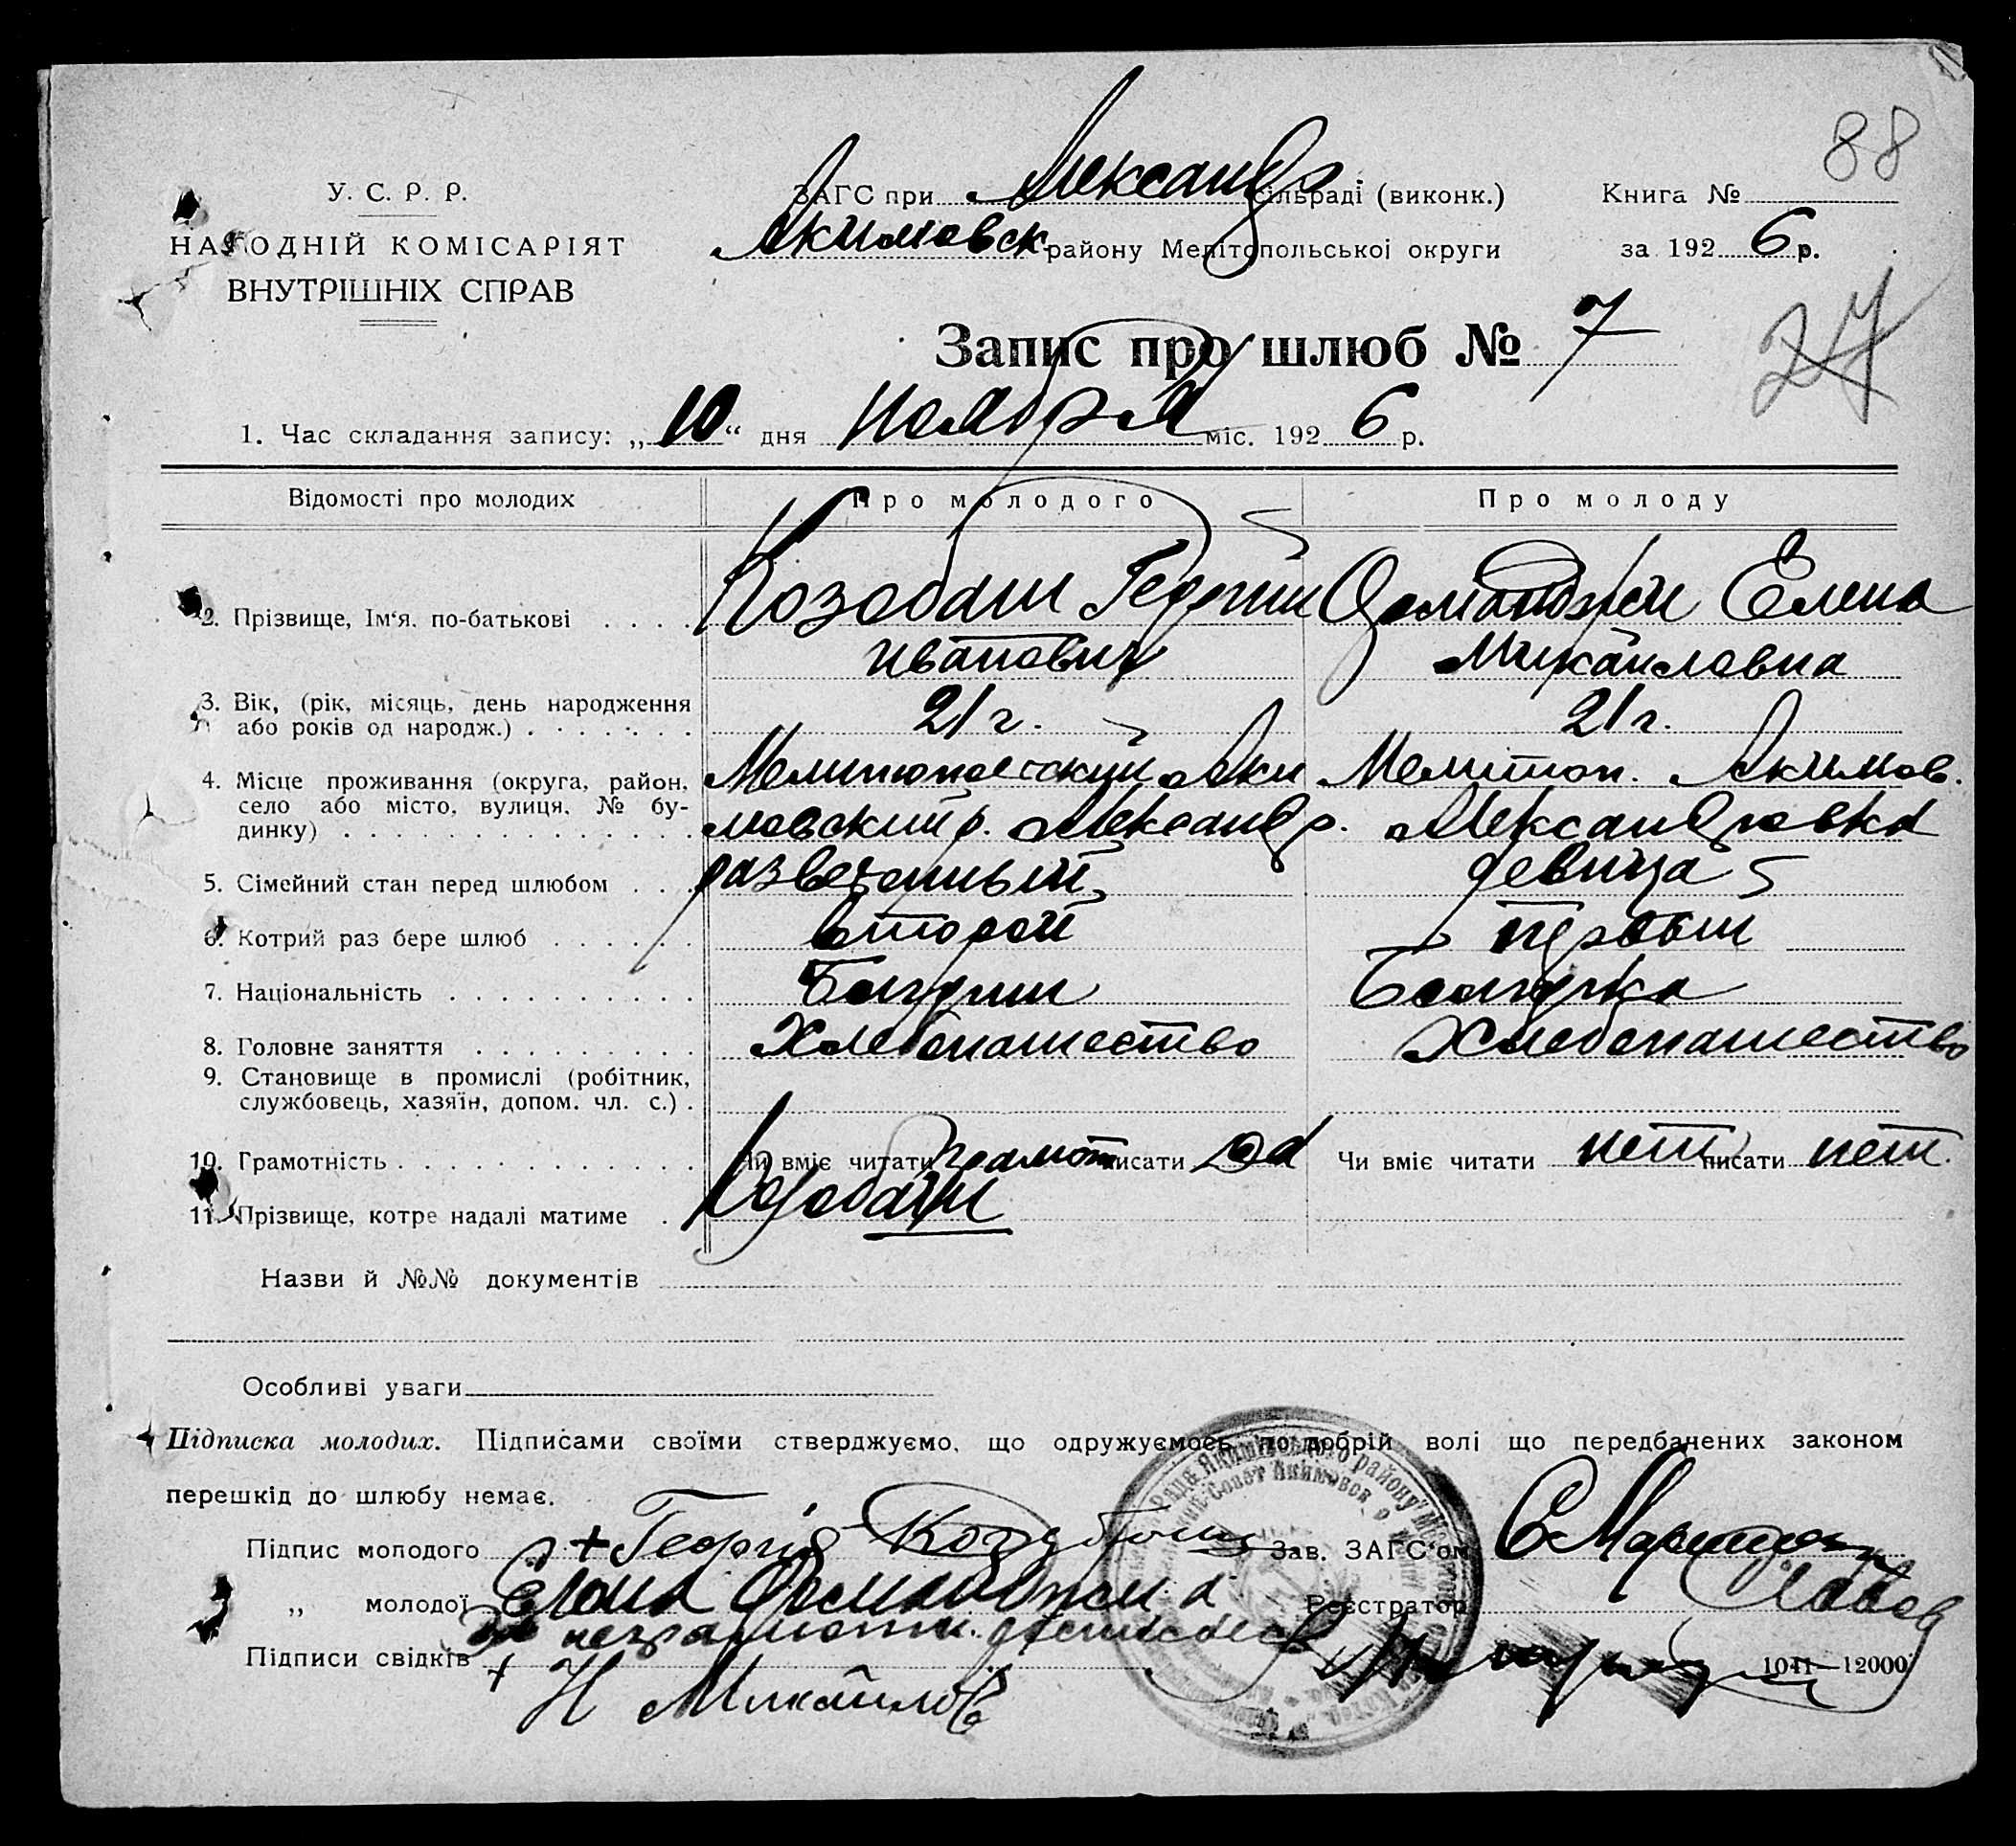 88
У. С. Р. Р.
НАРОДНІЙ КОМІСАРІЯТ
ВНУТРІШНІХ СПРАВ
ЗАГС при Александр. сільраді (виконк.)
Акимовск району Мелітопольської округи
Книга №
за 1926 р.
Запис про шлюб № 7
27
1. Час складання запису: „10“ дня ноября міс. 1926 р.
Відомості про молодих
Про молодого
Про молоду
2. Прізвище, Ім‘я. по-батькові . . . .
Козобаш Георгий
Иванович
Османджи Елена
Михайловна
3. Вік, (рік, місяць, день народження
або років од народж.) . . . . . . .
21 г.
21 г.
4. Місце проживання (округа, район,
село або місто, вулиця, № бу-
динку) . . . . . . . . . . . . . .
Мелитопольский Аки
мовский р. Александр.
Мелитоп. Акимов.
Александровка
5. Сімейний стан перед шлюбом . . .
разведенный
девица
6. Котрий раз бере шлюб . . . . . .
второй
первый
7. Національність . . . . . . . . . .
Болгарин
Болгарка
8. Головне заняття . . . . . . . . .
Хлебопашество
Хлебопашество
9. Становище в промислі (робітник,
службовець, хазяїн, допом. чл. с.) .
10. Грамотність . . . . . . . . . . . .
Чи вміє читати грамот писати да
Чи вміє читати нет писати нет.
11. Прізвище, котре надалі матиме .
Козобаш
Назви й №№ документів
Особливі уваги
Підписка молодих. Підписами своїми стверджуємо, що одружуємось по добрій волі що передбачених законом
перешкід до шлюбу немає.
Підпис молодого + Георгій Козубаш
Зав. ЗАГС‘ом
„ молодої Елена Османджи а
Реєстратор
неграмотн.
Підписи свідків
+ Н Михайлов
1041—12000